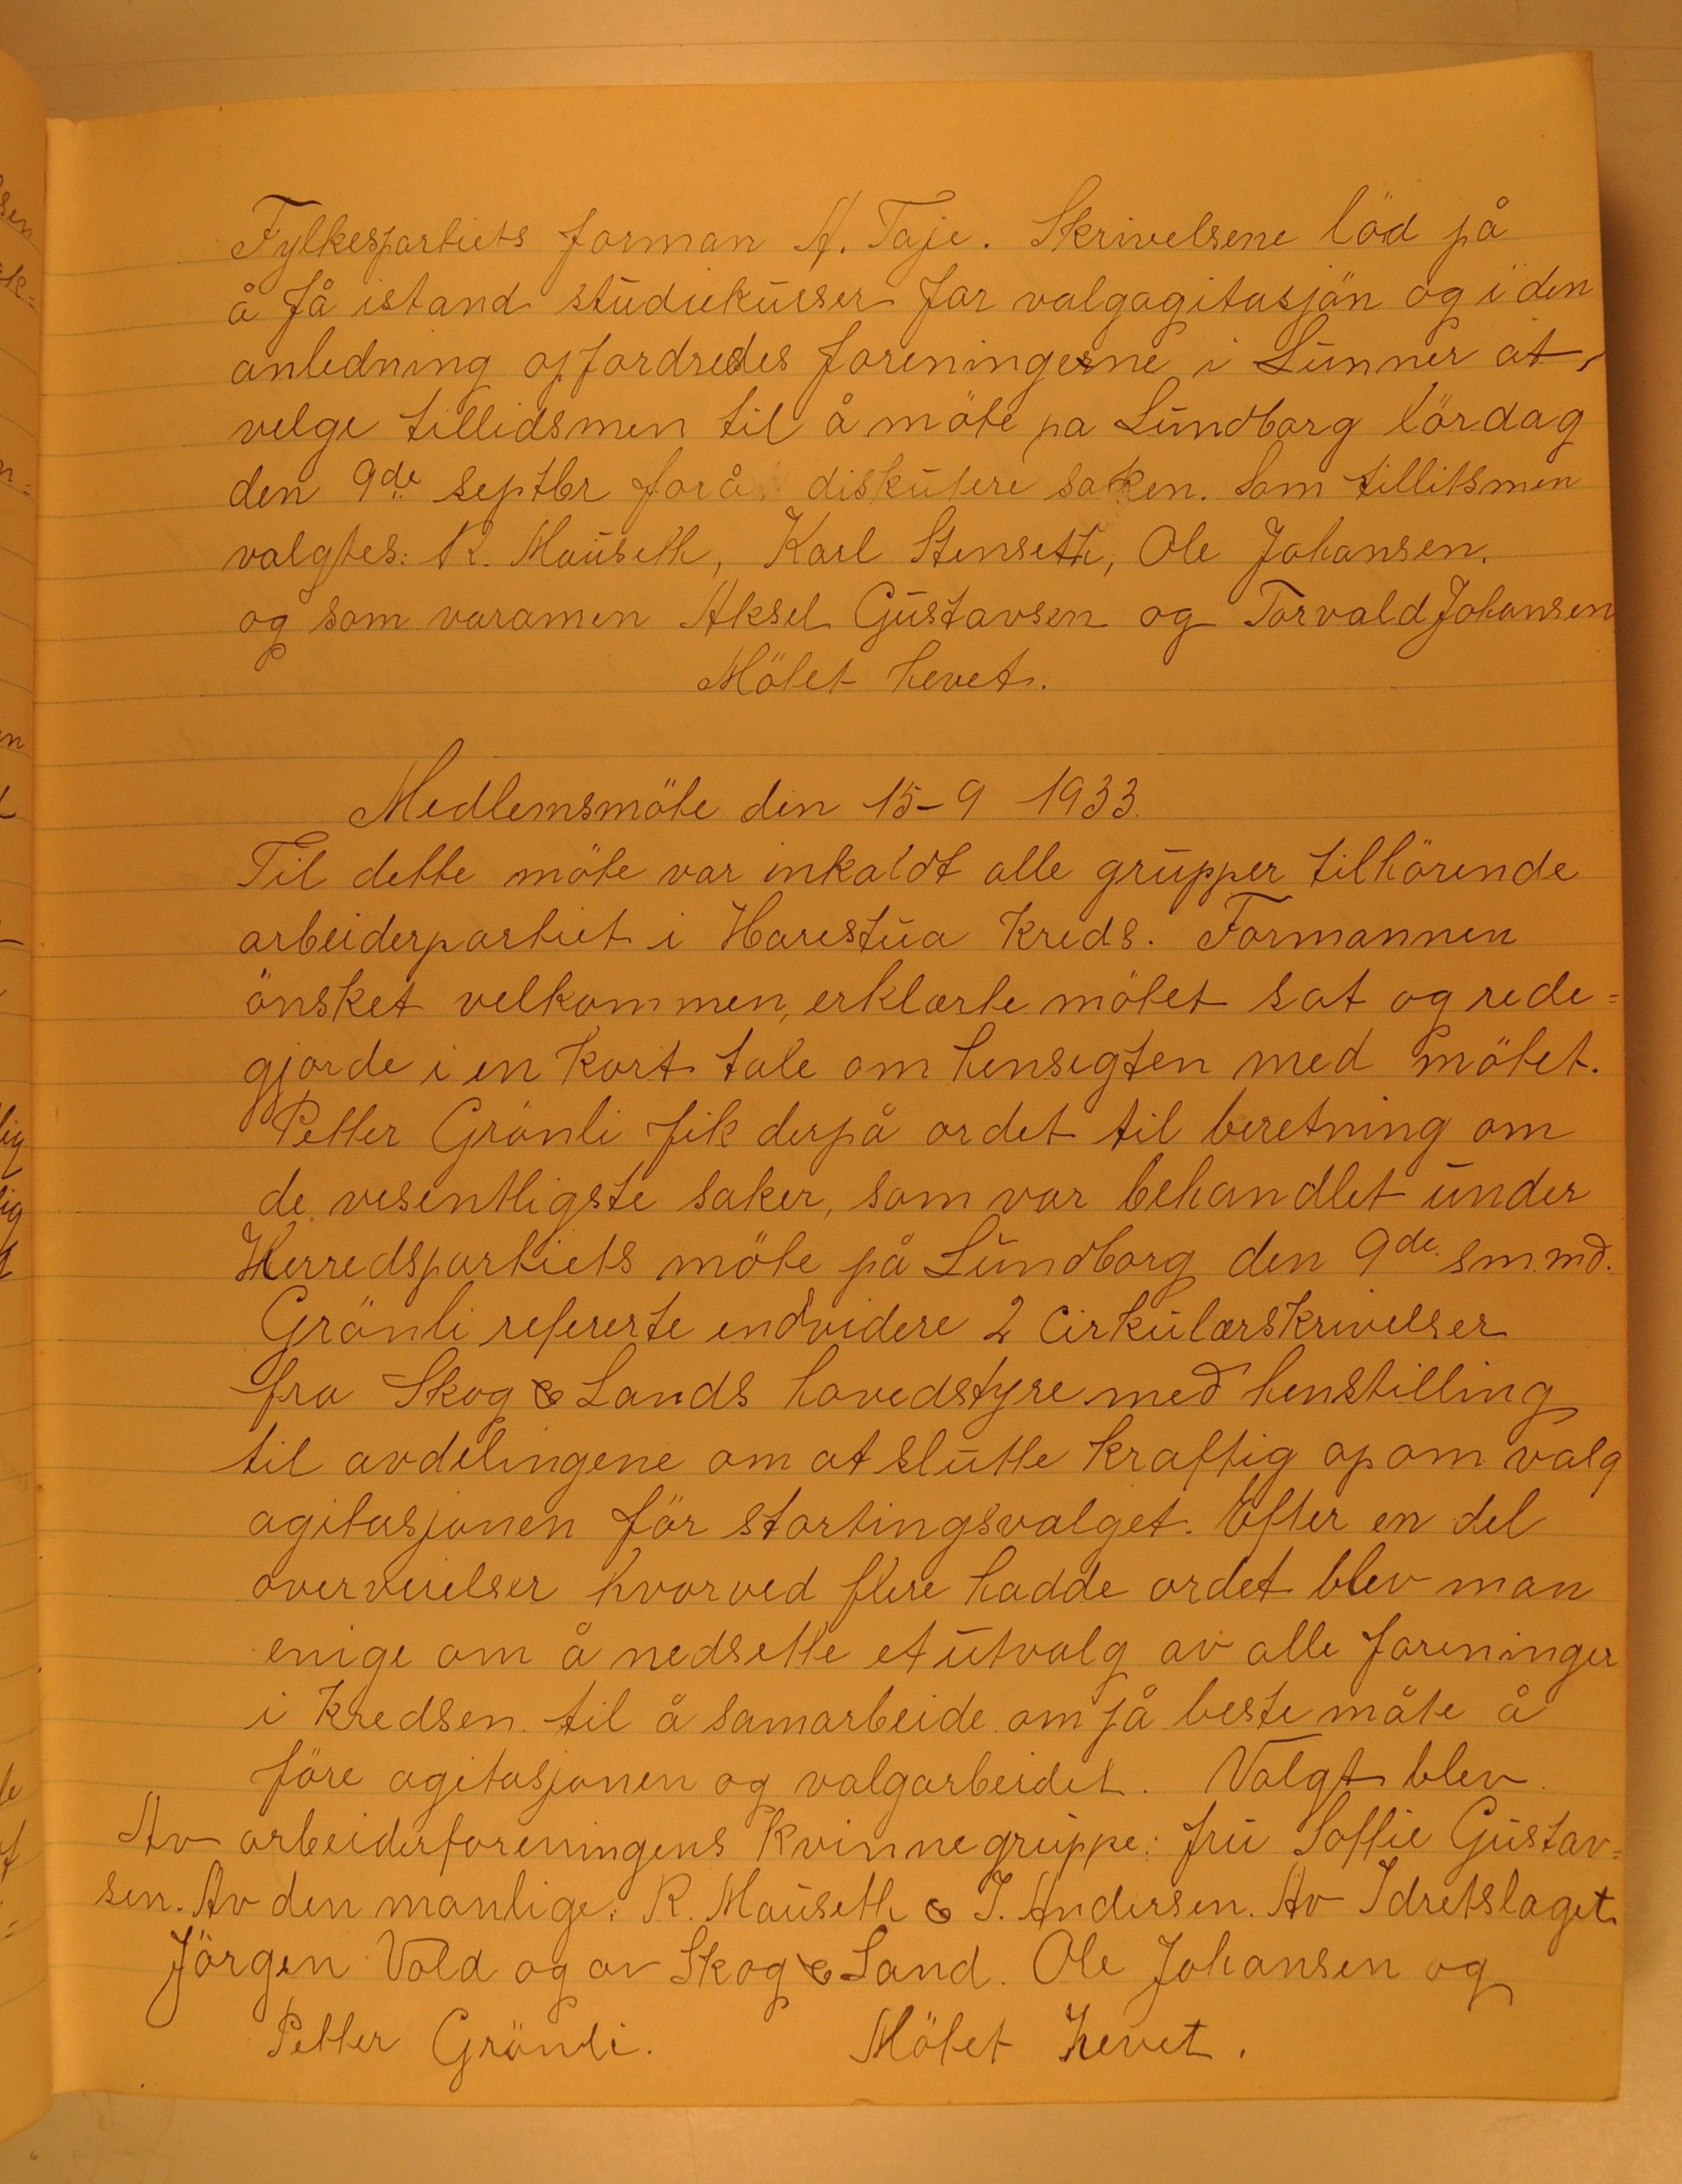 Fylkespartiets forman A. Taje. Skrivelsene löd på
å få istand studiekurser for valgagitasjön og i den
anledning opfordredes foreningerne i Lunner at
velge tillidsmen til å möte pa Lundborg lördag
den 9de septbr for å diskutere saken. Som tillitsmen
valgtes: R. Mauseth, Karl Stenseth, Ole Johansen.
og som varamen Aksel Gustavsen og Torvald Johansen
Mötet hevet.
Medlemsmöte den 15-9 1933.
Til dette möte var inkaldt alle grupper tilhörende
arbeiderpartiet i Harestua Kreds. Formannen
önsket velkommen, erklærte mötet sat og rede=
gjorde i en kort tale om hensigten med mötet.
Petter Grönli fik derpå ordet til beretning om
de vesentligste saker, som var behandlet under
Herredspartiets möte på Lundborg den 9de sm. md.
Grönli refererte endvidere 2 Cirkulærskrivelser
fra Skog & Lands hovedstyre med henstilling
til avdelingene om at slutte kraftig op om valg
agitasjonen för stortingsvalget. Efter en del
overveielser hvorved flere hadde ordet blev man
enige om å nedsette et utvalg av alle foreninger
i kredsen til å samarbeide om på beste måte å
före agitasjonen og valgarbeidet. Valgt blev
Av arbeiderforeningens Kvinnegruppe: fru Soffie Gustav=
sen. Av den manlige: R. Mauseth & J. Andersen. Av Idretslaget
Jörgen Vold og av Skog & Land. Ole Johansen og
Petter Grönli. Mötet hevet.